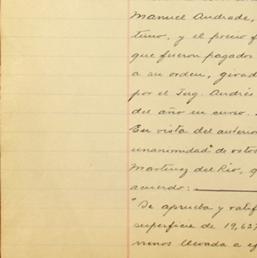 Manuel Andrade,
timo, y el precio f
que fueron pagados
a su orden, girad
por el Ing. Andrés
del año en curso.
En vista del anterior
unanimidad de votos
Martinez del Rio, q
acuerdo:
"Se aprueba y ratif
superficie de 19,627
menos llevada a ef